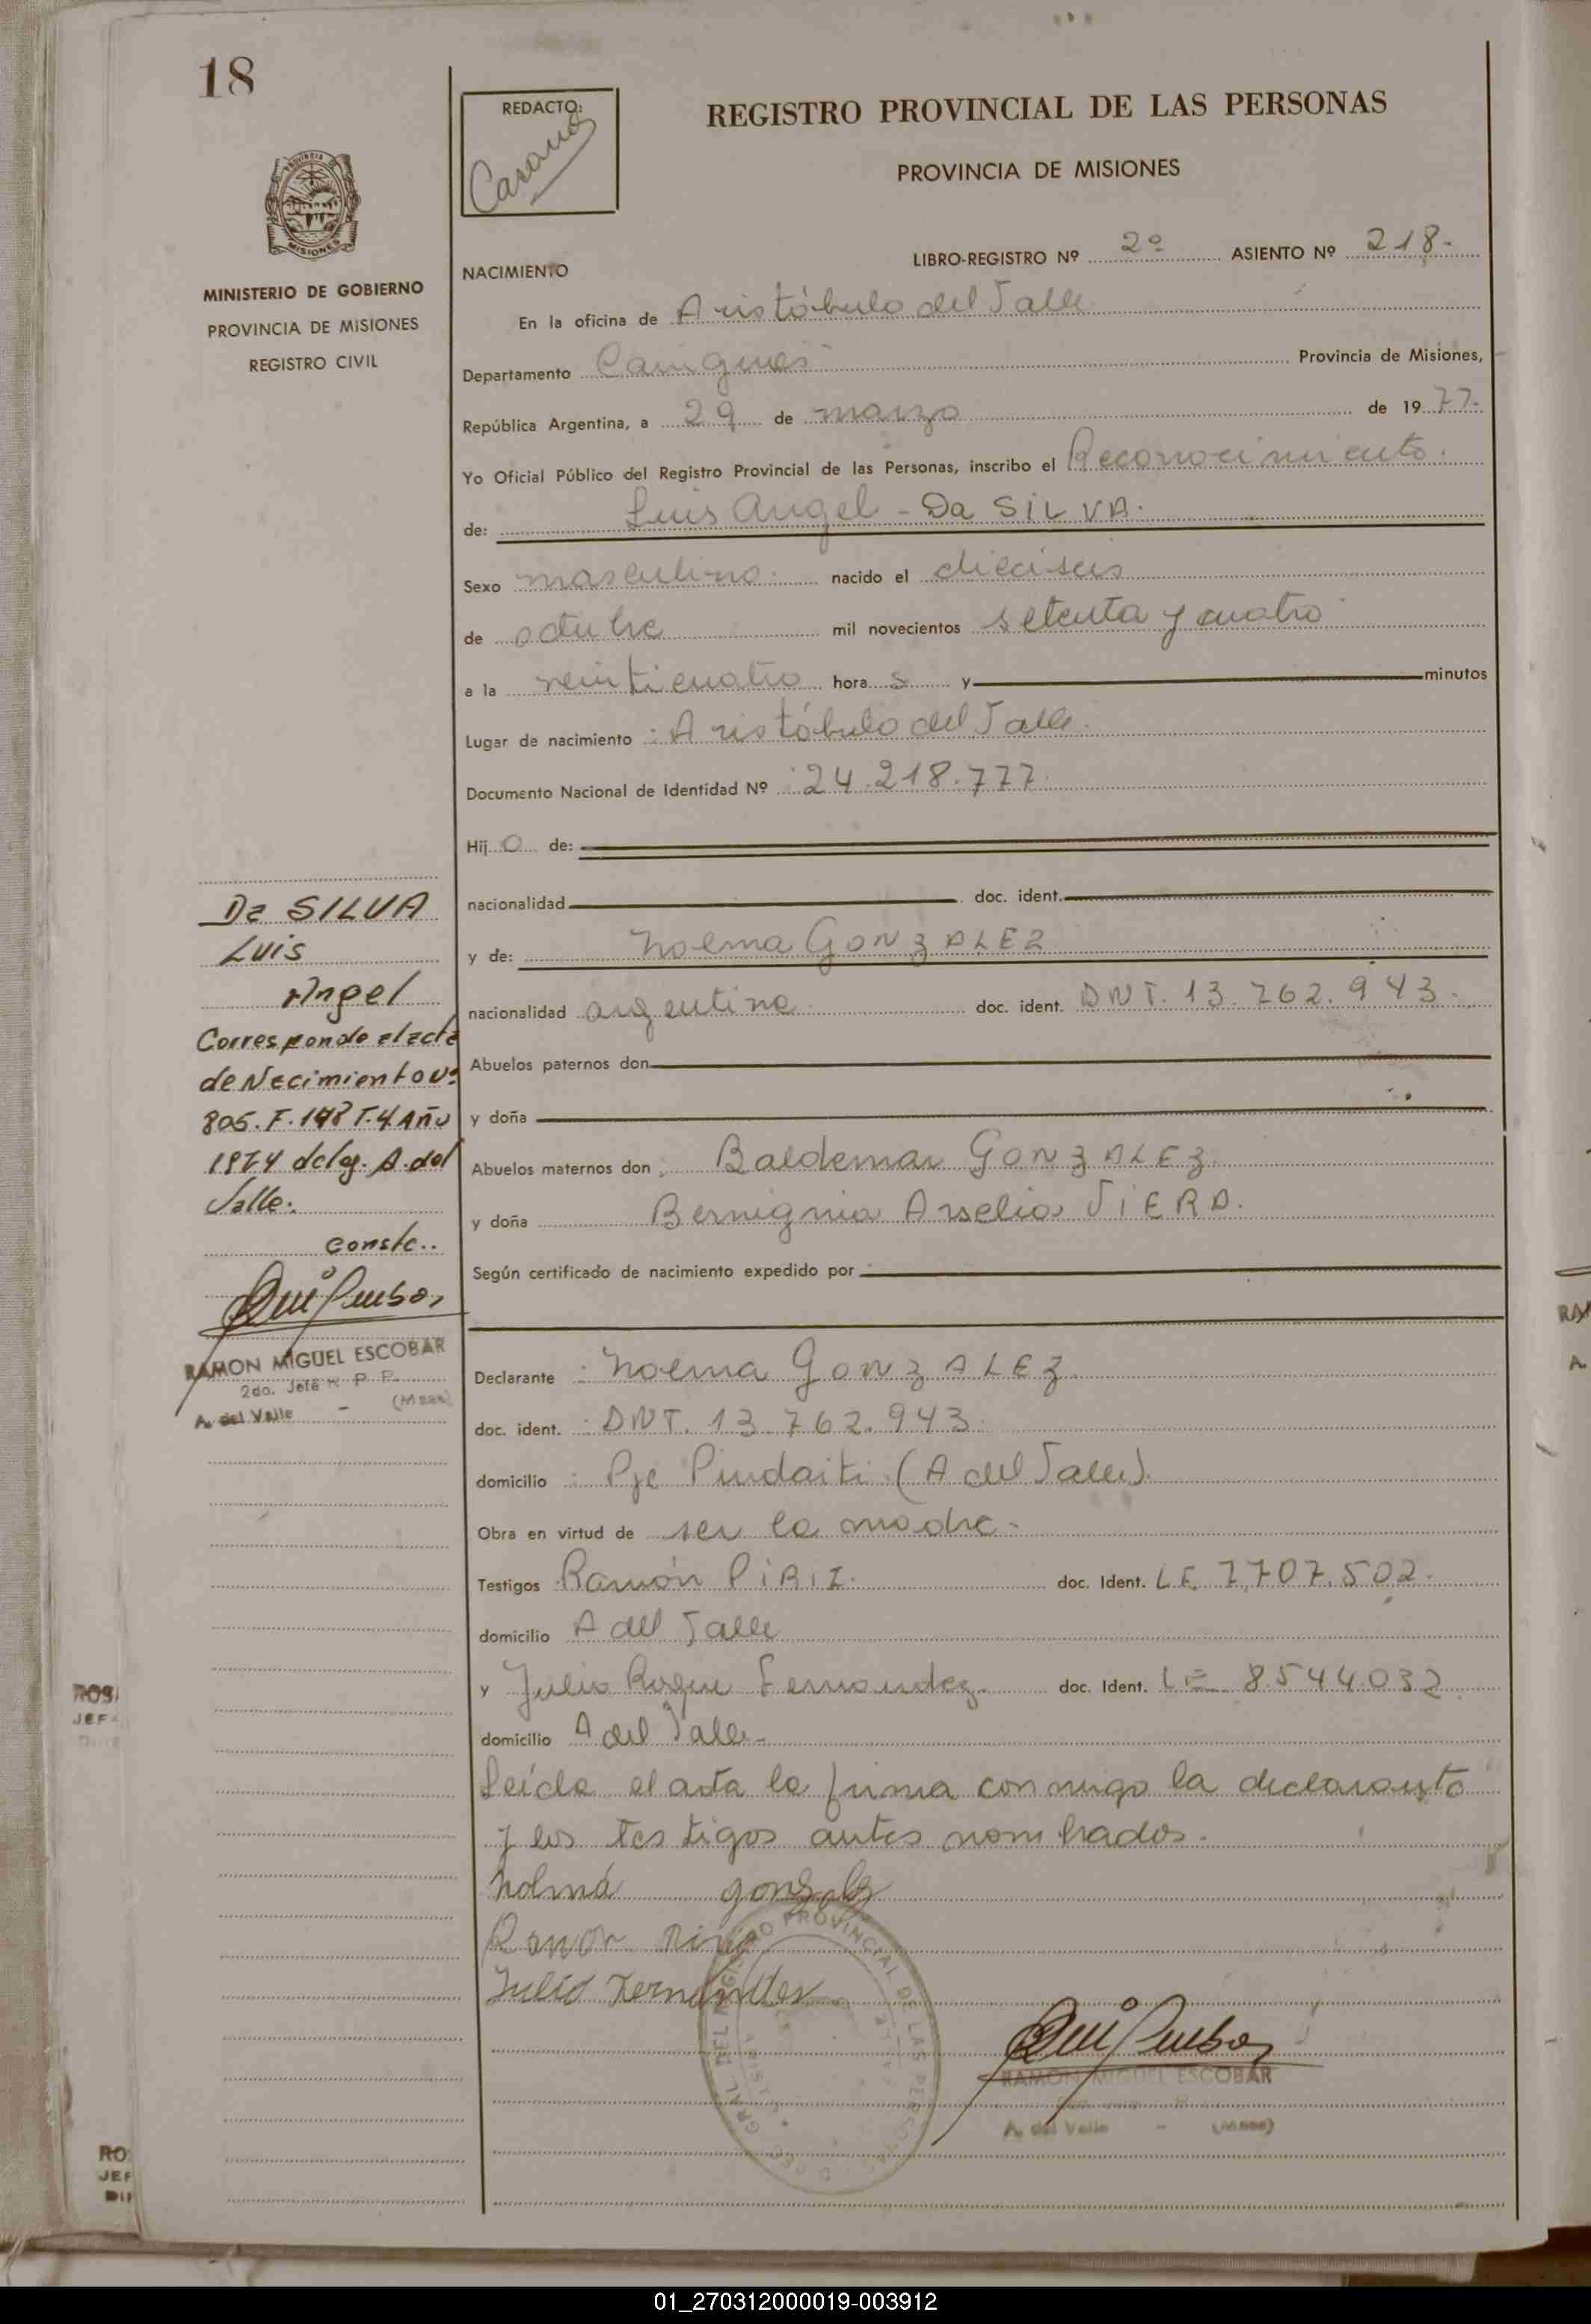 18
REDACTO:
REGISTRO PROVINCIAL DE LAS PERSONAS
PROVINCIA DE MISIONES
MINISTERIO DE GOBIERNO
PROVINCIA DE MISIONES
REGISTRO CIVIL
LIBRO-REGISTRO Nº 2º ASIENTO Nº 218.
NACIMIENTO
En la oficina de Aristóbulo del Valle
Departamento Cainguás Provincia de Misiones,
República Argentina, a 29 de marzo de 1977.
Yo Oficial Público del Registro Provincial de las Personas, inscribo el Reconocimiento.
de: Luis Angel - Da SILVA.
Sexo masculino. nacido el dieciseis
de octubre mil novecientos setenta y cuatro
a la veinticuatro hora s y minutos
Lugar de nacimiento : Aristóbulo del Valle.
Documento Nacional de Identidad Nº 24.218.777.
Hij o de:
nacionalidad doc. ident.
y de: Noema GONZALEZ
nacionalidad argentina doc. ident. DNT. 13.762.943.
Abuelos paternos don
y doña
Abuelos maternos don : Baldemar GONZALEZ
y doña Bernignia Arselia VIERA.
Según certificado de nacimiento expedido por
Declarante : Noema GONZALEZ
doc. ident. : DNT. 13.762.943.
domicilio : Pje Pindaiti (A del Valle).
Obra en virtud de ser la madre.
Testigos Ramón PIRIZ. doc. Ident. LE 7.707.502.
domicilio A del Valle
y Julio Roque Fernandez. doc. Ident. LE 8.544.032
domicilio A del Valle.
Leída el acta la firma conmigo la declarante
y los testigos antes nombrados.
Nolmá gonzalez
Ramon Piriz
Julio Fernandez
RAMON MIGUEL ESCOBAR
A. del Valle - (Mnes)
Da SILVA
Luis
Angel
Corresponde al acta
de Nacimiento Nº
805. F. 198 T. 4 Año
1974 del og. A. del
Valle.
Conste..
RAMON MIGUEL ESCOBAR
2do. Jefe R P P.
A. del Valle - (Mnes)
ROS
JEF
RO
JEF
01_270312000019-003912